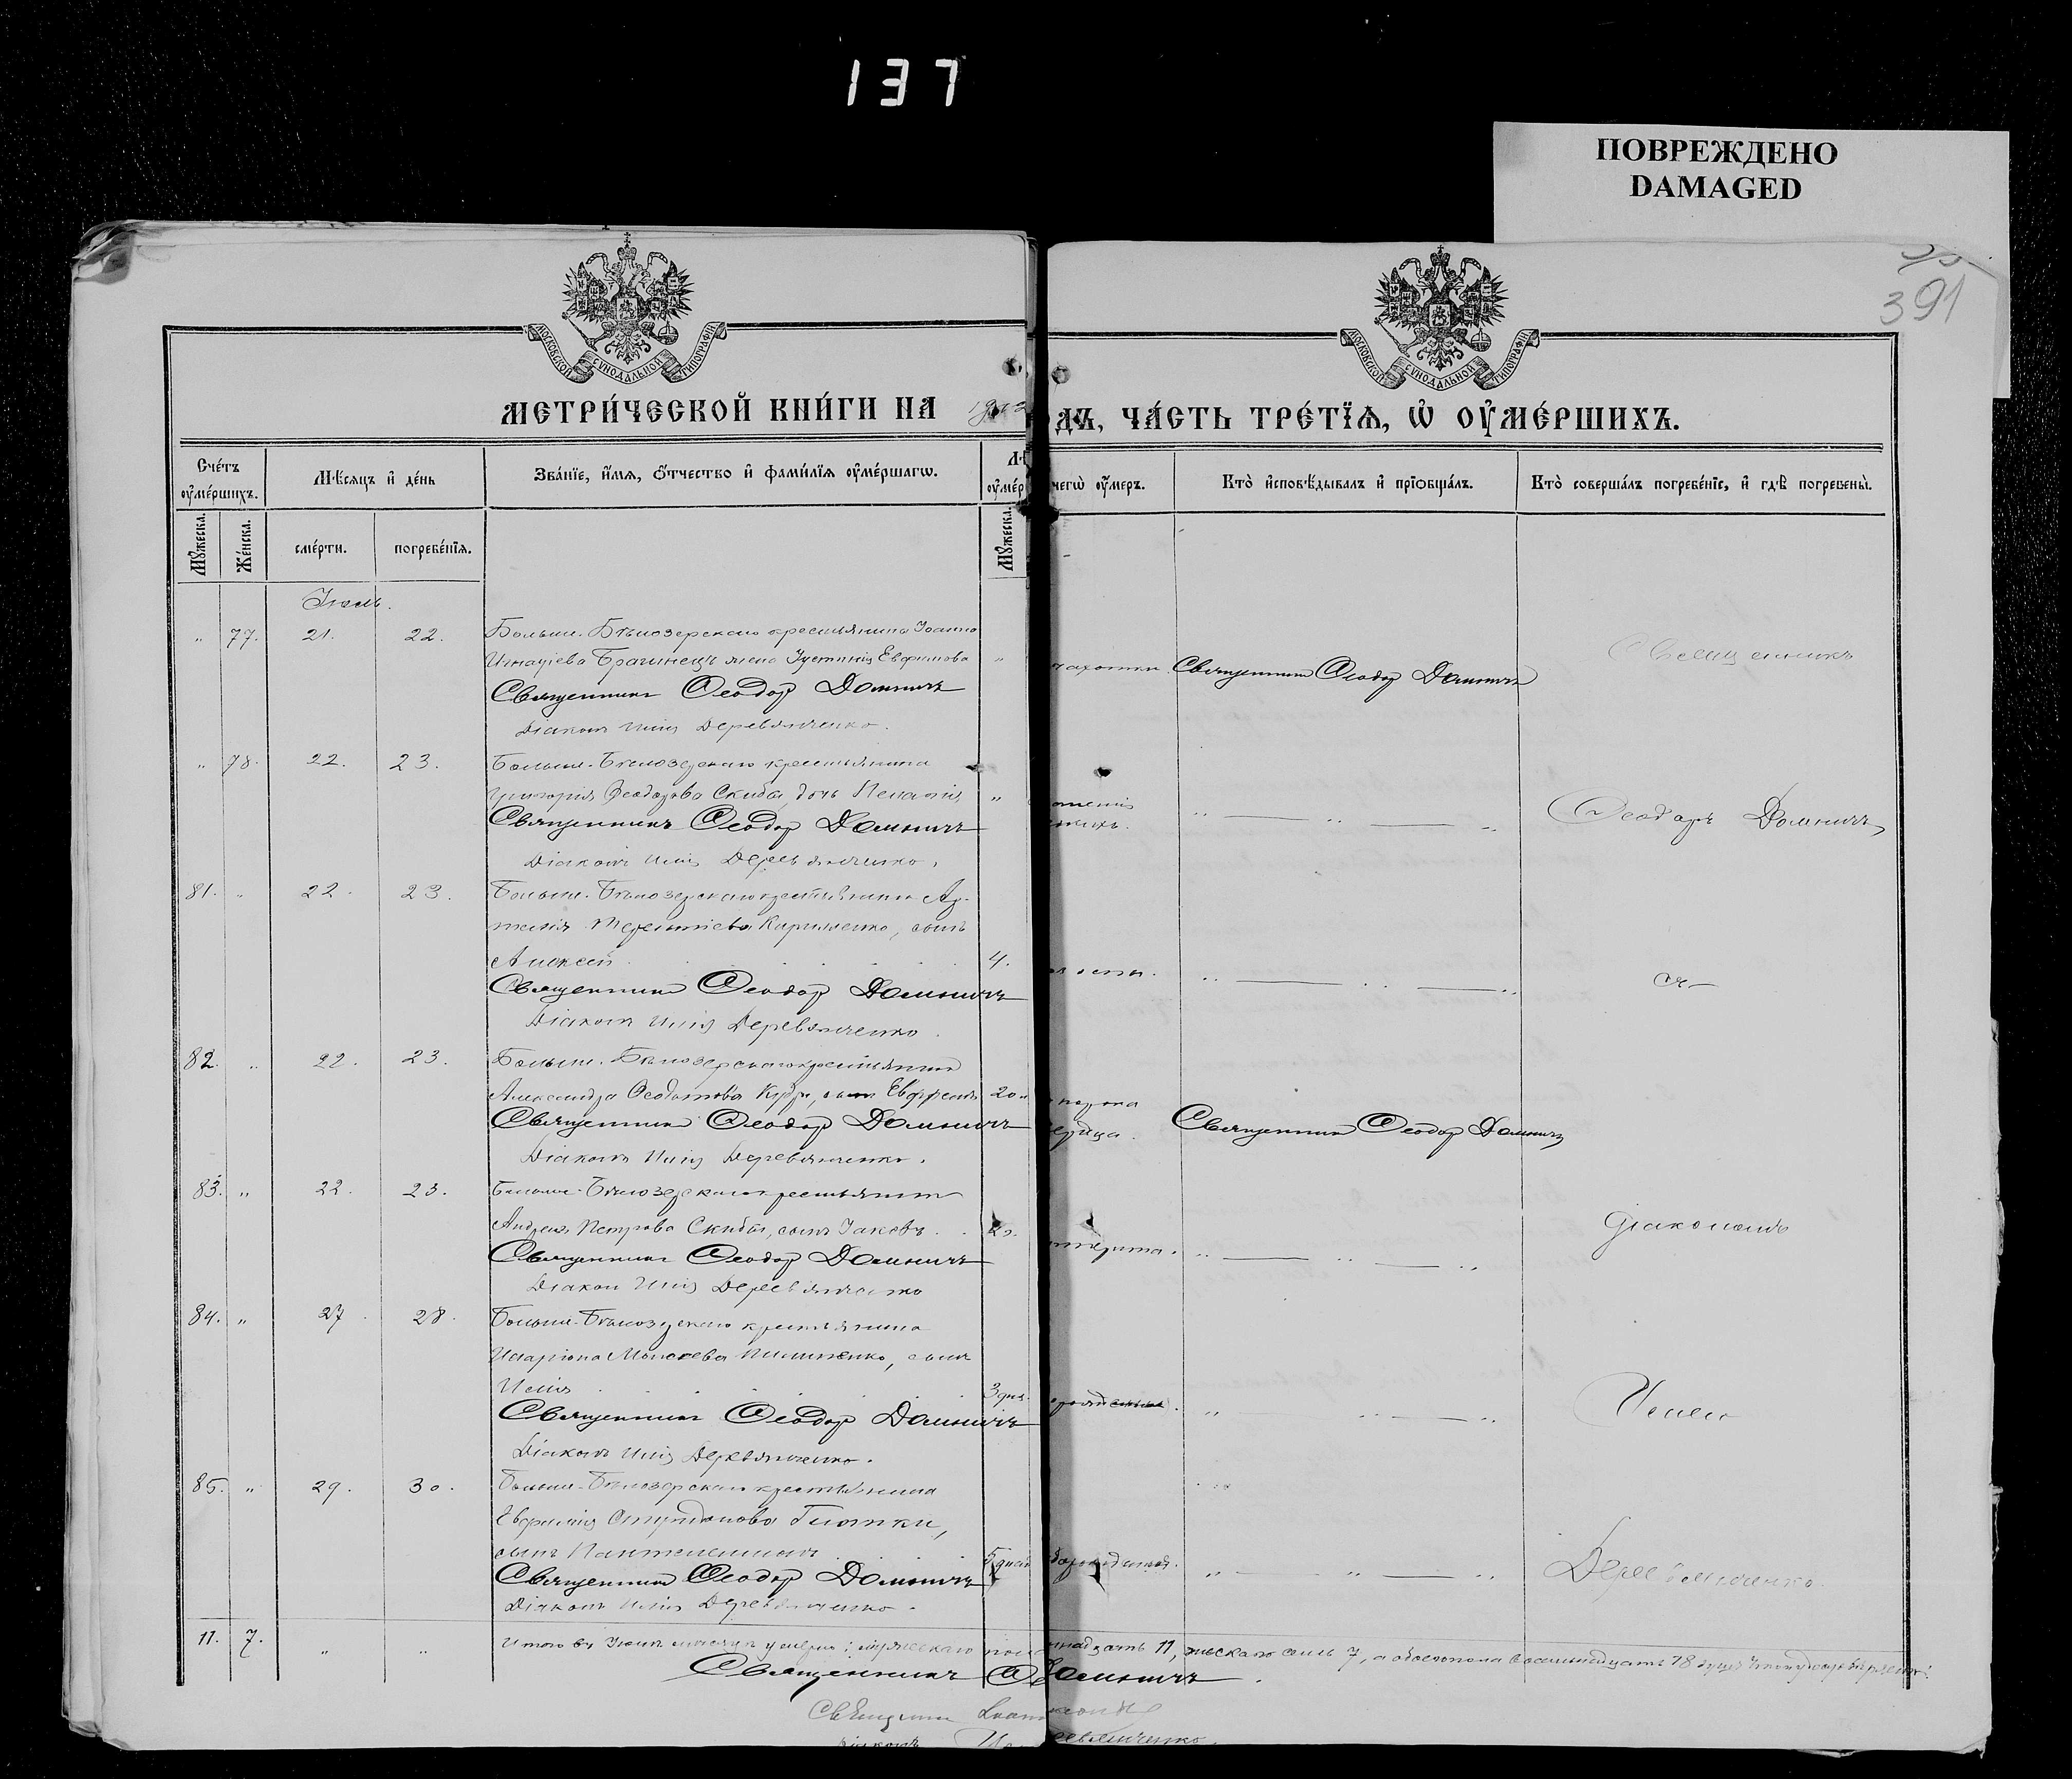 137
ПОВРЕЖДЕНО
DAMAGED
391
МОСКОВСКОЙ СУНОДАЛЬНОЙ ТИПОГРАФІИ
МОСКОВСКОЙ СУНОДАЛЬНОЙ ТИПОГРАФІИ
МЕТРИ́ЧЕСКОЙ КНИ́ГИ НА
ДЪ, ЧА́СТЬ ТРЕ́ТЇѦ, Ѡ ОУ҆МЕ́РШИХЪ.
Сче́тъ оу҆ме́ршихъ.
Мѣ́сяцъ и҆ де́нь
Зва́нїе, и҆́мѧ, ѻ҆́тчество и҆ фами́лїѧ оу҆ме́ршагѡ.
чегѡ̀ оу҆́меръ.
Кто̀ и҆сповѣ́дывалъ и҆ прїѡбща́лъ.
Кто̀ соверша́лъ погребе́нїе, и҆ гдѣ̀ погребены̀.
Мꙋ́жеска.
Же́нска.
сме́рти.
погребе́нїѧ.
Мꙋ́жеска.
Іюль.
" 77. 21. 22. Больш. Бѣлозерскаго крестьянина Іоанна
Игнатіева Брагинецъ жена Іустинія Евфимова "
Священникъ Ѳеодор Домничъ
Діаконъ Илія Деревянченко.
чахотки Священник Ѳеодор Домничъ
Священникъ
" 78. 22. 23. Больше-Бѣлозерскаго крестьянина
Григорія Ѳеодорова Скибы, дочь Пелагія "
Священникъ Ѳеодор Домничъ
Діаконъ Илія Деревянченко.
Ѳеодоръ Домничъ
81. " 22. 23. Больше-Бѣлозерскаго крестьянина Ар-
темія Терентіева Кириленко, сынъ
Алексѣй 4.
Священник Ѳеодор Домничъ
Діаконъ Илія Деревянченко.
82. " 22. 23. Больше-Бѣлозерскаго крестьянина
Александра
сынъ
20
Священник Ѳеодор Домничъ
Діаконъ Илія Деревянченко.
порока
сердца. Священник Ѳеодор Домничъ
83. " 22. 23. Больше-Бѣлозерскаго крестьянина
Андрея Петрова Скибы, сынъ Іаковъ
Священник Ѳеодор Домничъ
Діакон Илія Деревянченко
діакономъ
84. " 27. 28. Больше-Бѣлозерскаго крестьянина
Иларіона Моисеева
сынъ
Илія 3 дня.
Священник Ѳеодор Домничъ
Діаконъ Илія Деревянченко.
Иліею
85. " 29. 30. Больше-Бѣлозерскаго крестьянина
Евфимія Спиридонова
сынъ Пантелеимонъ 5 дней
Священник Ѳеодор Домничъ
Діаконъ Илія Деревянченко.
Деревянченко.
11. 7. " " Итого въ Іюлѣ мѣсяцѣ умерло: мужескаго пола
надцать 11, женскаго семь 7, а обоего пола восемнадцать 18 душъ
Священникъ Ѳ Домничъ.
Священник
Діаконъ Деревянченко.